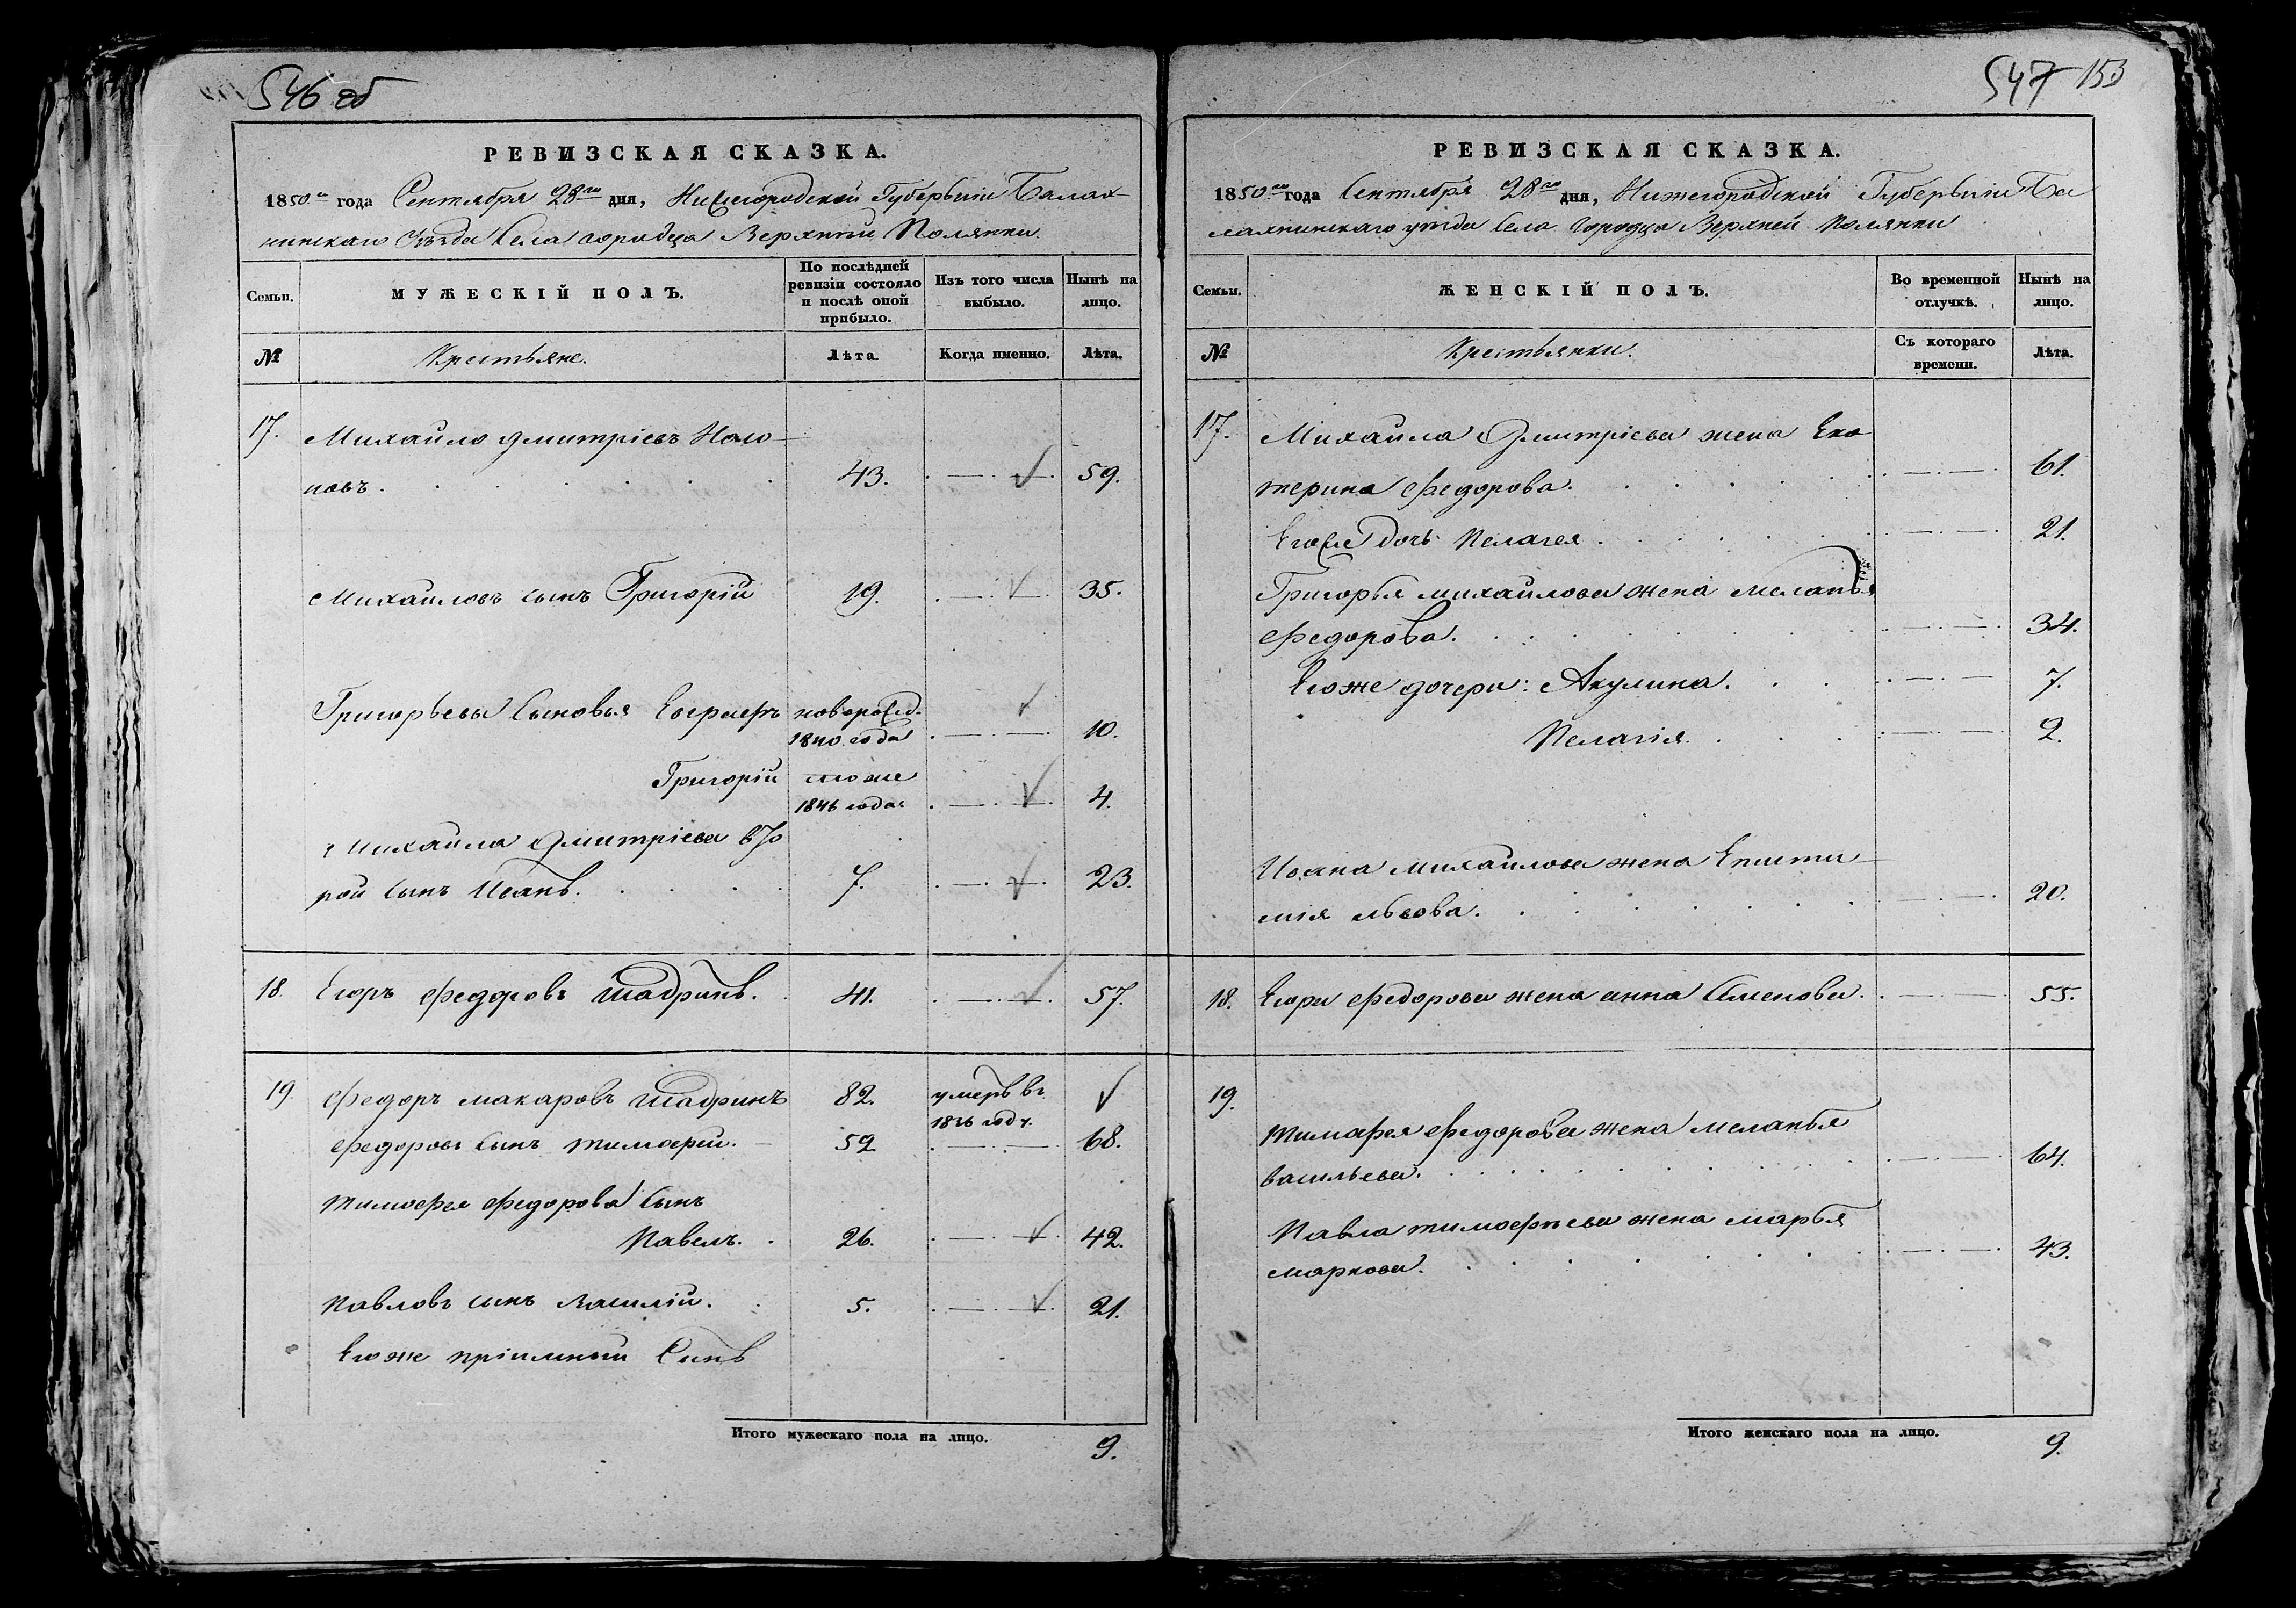 546 об
РЕВИЗСКАЯ СКАЗКА.
1850го года Сентября 28го дня, Нижегородской Губернiи Балах-
нинскаго Уѣзда Села городца Верхнѣй Полянки
Семьи.
МУЖЕСКІЙ ПОЛЪ.
По послѣдней
ревизіи состояло
и послѣ оной
прибыло.
Изъ того числа
выбыло.
Нынѣ на
лицо.
№
Крестьяне.
Лѣта.
Когда именно.
Лѣта.
17. Михайло дмитріевъ
43. 59.
Михайловъ сынъ Григорій 19. 35.
Григорьевы сыновья Евграфъ новорожд.
1840 года 10.
Григорій тоже
1846 года 4.
Михайла Дмитріева вто
рой сынъ Иванъ. 7. 23.
18. Егоръ федоровъ Шадринъ. 41. 57.
19. Федоръ макаровъ Шадринъ 82. умеръ въ
1836 году.
федоровъ сынъ тимофей. 52. 68.
тимофея федорова сынъ
Павелъ. 26. 42.
Павловъ сынъ Василій. 5. 21.
Его же пріимный Сынъ
Итого мужескаго пола на лицо. 9.
547 153
РЕВИЗСКАЯ СКАЗКА.
1850го года Сентября 28го дня, Нижегородской Губернiи Ба
лахнинскаго уѣзда Села Городца Верхней Полянки
Семьи.
ЖЕНСКІЙ ПОЛЪ.
Во временной
отлучкѣ.
Нынѣ на
лицо.
№
Крестьянки.
Съ котораго
времени.
Лѣта.
17. Михайла Дмитріева жена Ека
терина федорова. 61.
Егоже дочь Пелагея. 21.
Григорья михайлова жена меланья
федорова. 34.
Егоже дочери: Акулина. 7.
Пелагія. 2.
Ивана михайлова жена Епити
мія львова. 20.
18. Егора федорова жена анна Семенова. 55.
19.
тимофея федорова жена меланья
васильева. 64.
Павла тимофѣева жена марья
маркова. 43.
Итого женскаго пола на лицо. 9.